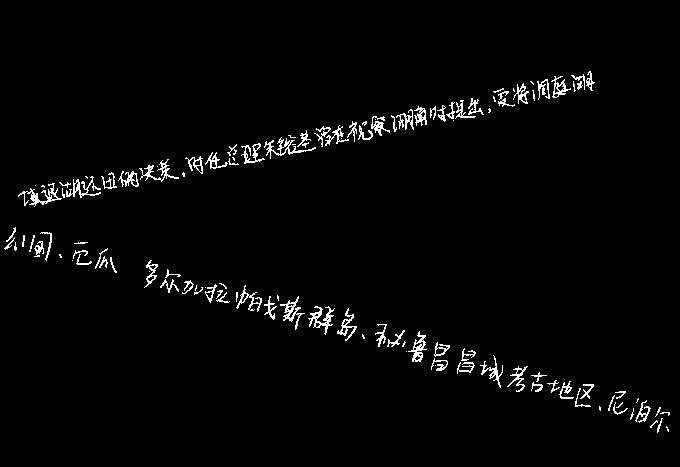 域退湖还田的决策,时任总理朱镕基曾在视察湖南时提出,要将洞庭湖
公园、厄瓜 多尔加拉帕戈斯群岛、秘鲁昌昌城考古地区、尼泊尔